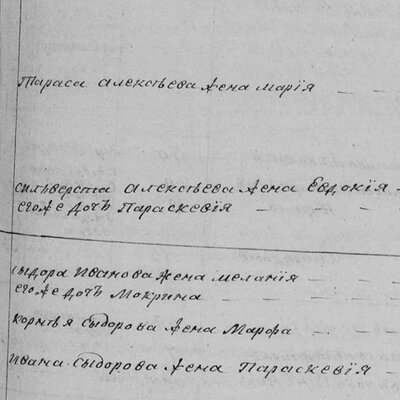 Тараса Алексѣева жена Марїя
Сильверста Алексѣева жена Евдокїя
егоже дочь Параскевїя
Сыдора Иванова жена Меланїя
егоже дочь Мокрина
Корнѣя Сыдорова жена Марфа
Ивана Сыдорова жена Параскевїя